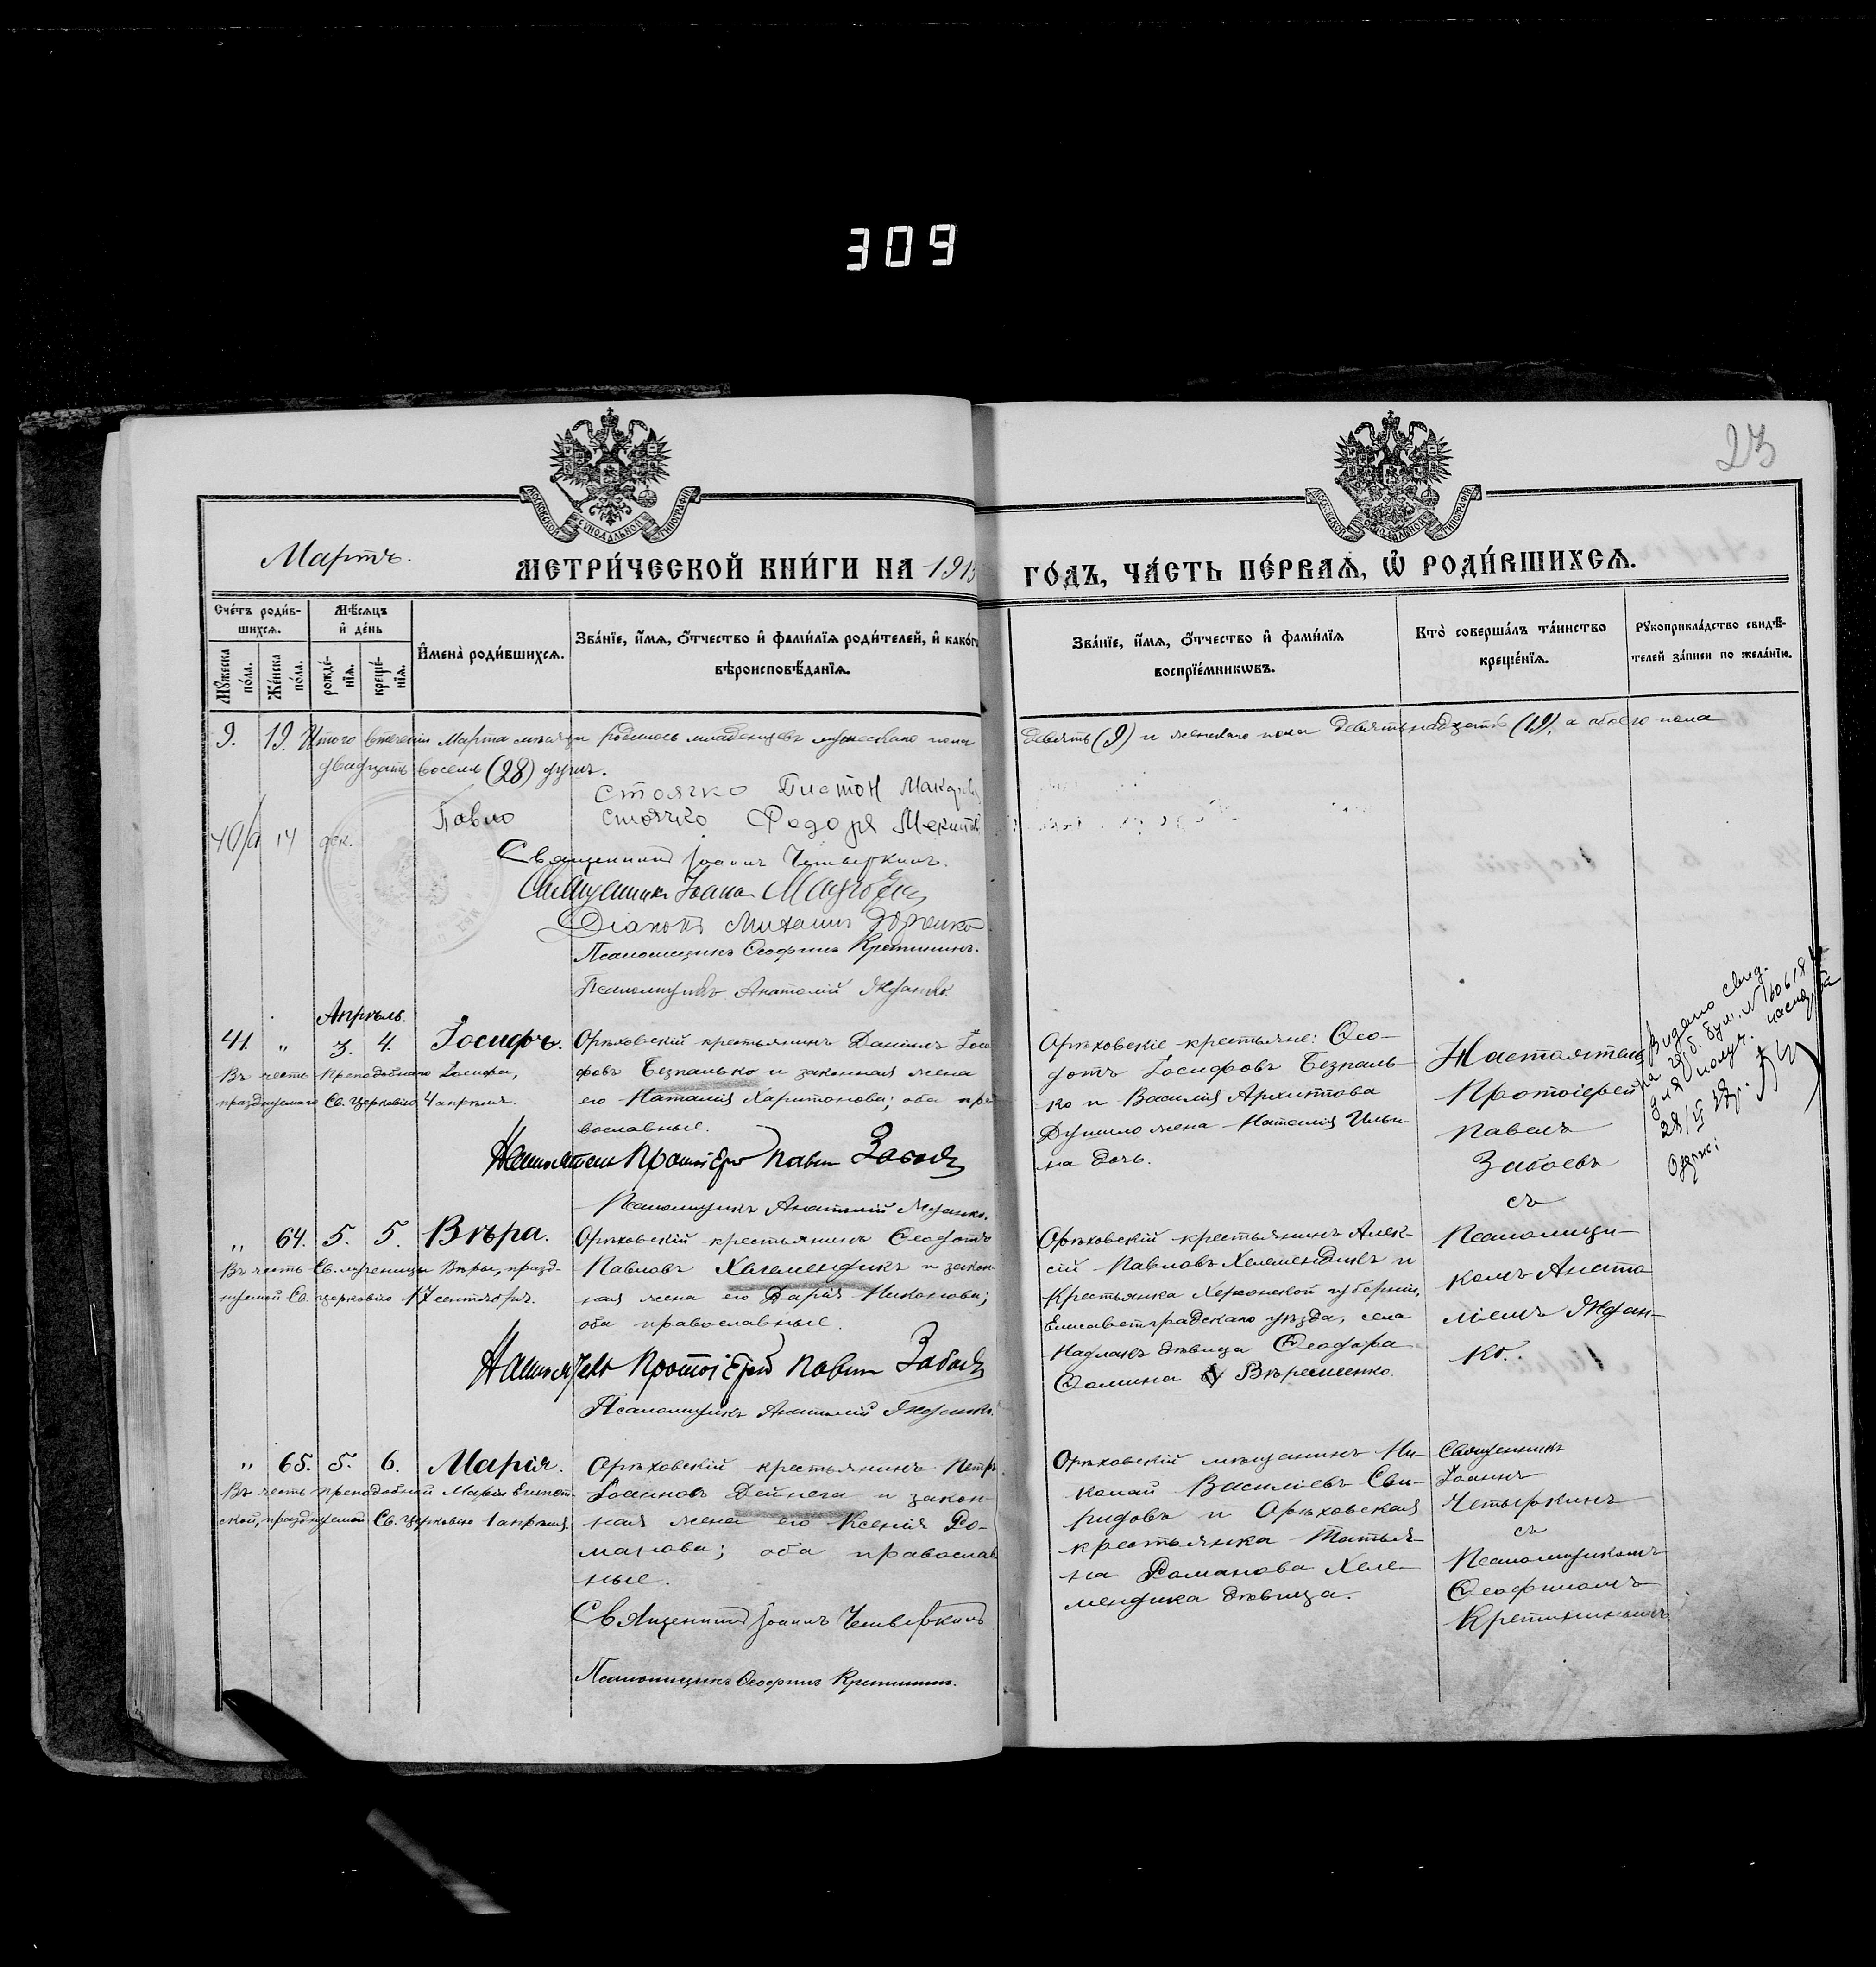 309
23
МОСКОВСКОЙ СѴНОДАЛЬНОЙ ТИПОГРАФІИ
МОСКОВСКОЙ СѴНОДАЛЬНОЙ ТИПОГРАФІИ
Мартъ.
МЕТРИ́ЧЕСКОЙ КНИ́ГИ НА 1915
ГО́ДЪ, ЧА́СТЬ ПЕ́РВАѦ, Ѡ҆ РОДИ́ВШИХСѦ.
Сче́тъ роди́в-
шихсѧ.
Мꙋ́жеска по́ла.
Же́нска по́ла.
Мѣ́сѧцъ
и҆ де́нь
рожде́-
нїѧ.
креще́-
нїѧ.
И҆мена̀ роди́вшихсѧ.
Зва́нїе, и҆́мѧ, ѻ҆́тчество и҆ фами́лїѧ роди́телей, и҆ како́гѡ
вѣроисповѣ́данїѧ.
Зва́нїе, и҆́мѧ, ѻ҆́тчество и҆ фами́лїѧ
воспрїе́мникѡвъ.
Кто̀ соверша́лъ та́инство
креще́нїѧ.
Рꙋкоприкла́дство свидѣ́-
телей за́писи по жела́нїю.
9. 19. Итого въ теченіи Марта мѣсяца родилось младенцевъ мужескаго пола
девять (9) и женскаго пола девятьнадцать (19), а обоего пола
двадцать восемь (28) душъ.
Стоячко Платон
40/а 14 дек. Павло Стоячко Федора
Священникъ Іоаннъ Четыркинъ.
Священникъ Іоаннъ
Діаконъ Михаилъ
Псаломщикъ Ѳеофилъ Кретининъ.
Псаломщикъ Анатолій Жданко.
Апрѣль.
41. " 3. 4. Іосифъ.
Въ честь Преподобнаго Іосифа,
празднуемаго Св. Церковію 4 апрѣля.
Орѣховскій крестьянинъ Даніилъ Іоси
фовъ Безпалько и законная жена
его Наталія Харитонова; оба пра
вославные.
Настоятель Протоіерей Павелъ Забаевъ
Псаломщикъ Анатолій Жданко.
Орѣховскіе крестьяне: Ѳео-
дотъ Іосифовъ Безпаль-
ко и Василія Архиппова
жена Наталія Ильи-
на дочь.
Настоятель
Протоіерей
Павелъ
Забаевъ
съ
Псаломщи-
комъ Анато
ліемъ Ждан-
ко.
Видано свид.
на гербов. бум. №
для получ. наслед
28/
" 64. 5. 5. Вѣра.
Въ честь Св. мученицы Вѣры, празд-
нуемой Св. Церковію 17 сентября.
Орѣховскій крестьянинъ Ѳеодотъ
Павловъ Хелемендикъ и закон-
ная жена его Дарія Никонова;
оба православные.
Настоятель Протоіерей Павелъ Забаевъ
Псаломщикъ Анатолій Жданко.
Орѣховскій крестьянинъ Алек-
сій Павловъ Хелемендикъ и
Крестьянка Херсонской губерніи,
Елисаветградскаго уѣзда, села
Надлакъ дѣвица Ѳеодора
Ѳомина Вѣремѣенко.
" 65. 5. 6. Марія.
Въ честь преподобной Маріи Египет-
ской, празднуемой Св. Церковію 1 апрѣля.
Орѣховскій крестьянинъ Петръ
Іоанновъ Дейнега и закон-
ная жена его Ксенія Ро-
манова; оба православ
ные.
Священникъ Іоаннъ Четыркинъ
Псаломщикъ Ѳеофилъ Кретининъ.
Орѣховскій мѣщанинъ Ни-
колай Василіевъ Сви-
ридовъ и Орѣховская
крестьянка Татья-
на Романова Хеле-
мендика дѣвица.
Священникъ
Іоаннъ
Четыркинъ
съ
Псаломщикомъ
Ѳеофиломъ
Кретининымъ